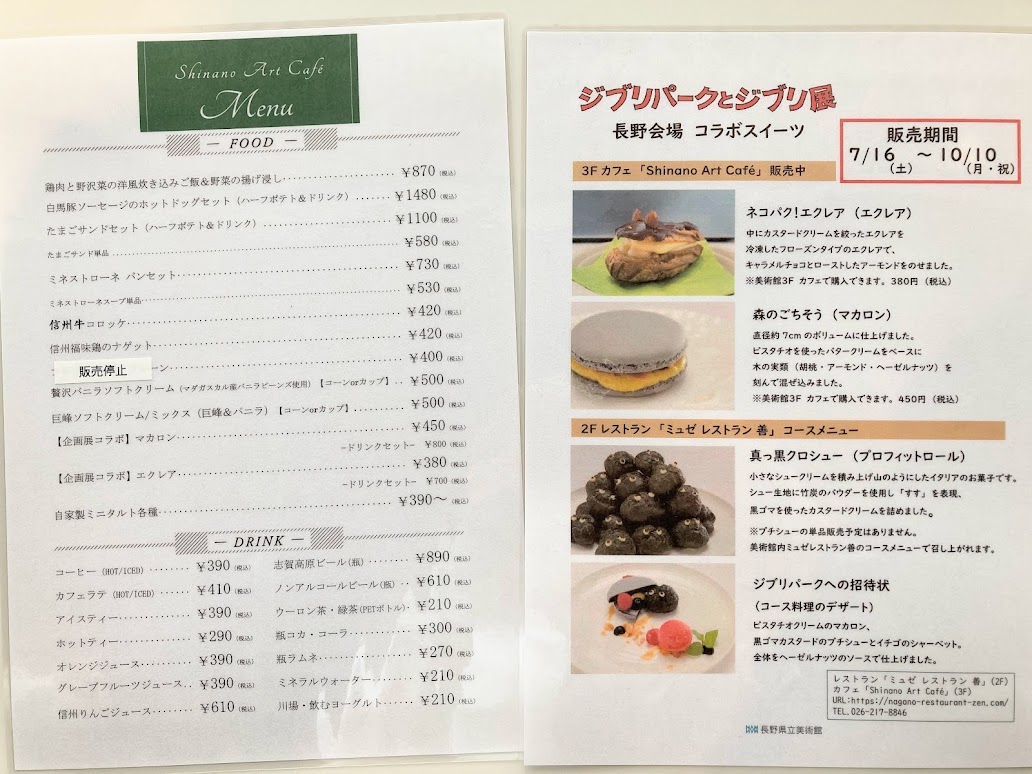 Shinano Art Café
Menu
— FOOD —
鶏肉と野沢菜の洋風炊き込みご飯&野菜の揚げ浸し ¥870 (税込)
白馬豚ソーセージのホットドッグセット (ハーフポテト&ドリンク) ¥1480 (税込)
たまごサンドセット (ハーフポテト&ドリンク) ¥1100 (税込)
たまごサンド単品 ¥580 (税込)
ミネストローネ パンセット ¥730 (税込)
ミネストローネスープ単品 ¥530 (税込)
信州牛コロッケ ¥420 (税込)
信州福味鶏のナゲット ¥420 (税込)
販売停止 ¥400 (税込)
贅沢バニラソフトクリーム (マダガスカル産バニラビーンズ使用)【コーンorカップ】 ¥500 (税込)
巨峰ソフトクリーム/ミックス (巨峰&バニラ)【コーンorカップ】 ¥500 (税込)
【企画展コラボ】マカロン ¥450 (税込)
−ドリンクセット− ¥800 (税込)
【企画展コラボ】エクレア ¥380 (税込)
−ドリンクセット− ¥700 (税込)
自家製ミニタルト各種 ¥390〜 (税込)
— DRINK —
コーヒー (HOT/ICED) ¥390 (税込)
カフェラテ (HOT/ICED) ¥410 (税込)
アイスティー ¥390 (税込)
ホットティー ¥290 (税込)
オレンジジュース ¥390 (税込)
グレープフルーツジュース ¥390 (税込)
信州りんごジュース ¥610 (税込)
志賀高原ビール(瓶) ¥890 (税込)
ノンアルコールビール(瓶) ¥610 (税込)
ウーロン茶・緑茶(PETボトル) ¥210 (税込)
瓶コカ・コーラ ¥300 (税込)
瓶ラムネ ¥270 (税込)
ミネラルウォーター ¥210 (税込)
川場・飲むヨーグルト ¥210 (税込)
ジブリパークとジブリ展
長野会場 コラボスイーツ
販売期間
7/16 〜 10/10
(土) (月・祝)
3F カフェ「Shinano Art Café」販売中
ネコパク!エクレア (エクレア)
中にカスタードクリームを絞ったエクレアを
冷凍したフローズンタイプのエクレアで、
キャラメルチョコとローストしたアーモンドをのせました。
※美術館3F カフェで購入できます。380円 (税込)
森のごちそう (マカロン)
直径約 7cm のボリュームに仕上げました。
ピスタチオを使ったバタークリームをベースに
木の実類 (胡桃・アーモンド・ヘーゼルナッツ) を
刻んで混ぜ込みました。
※美術館3F カフェで購入できます。450円 (税込)
2F レストラン「ミュゼ レストラン 善」コースメニュー
真っ黒クロシュー (プロフィットロール)
小さなシュークリームを積み上げ山のようにしたイタリアのお菓子です。
シュー生地に竹炭のパウダーを使用し「すす」を表現、
黒ゴマを使ったカスタードクリームを詰めました。
※プチシューの単品販売予定はありません。
美術館内ミュゼレストラン善のコースメニューで召し上がれます。
ジブリパークへの招待状
(コース料理のデザート)
ピスタチオクリームのマカロン、
黒ゴマカスタードのプチシューとイチゴのシャーベット。
全体をヘーゼルナッツのソースで仕上げました。
レストラン「ミュゼ レストラン 善」(2F)
カフェ「Shinano Art Café」(3F)
URL:https://nagano-restaurant-zen.com/
TEL.026-217-8846
長野県立美術館